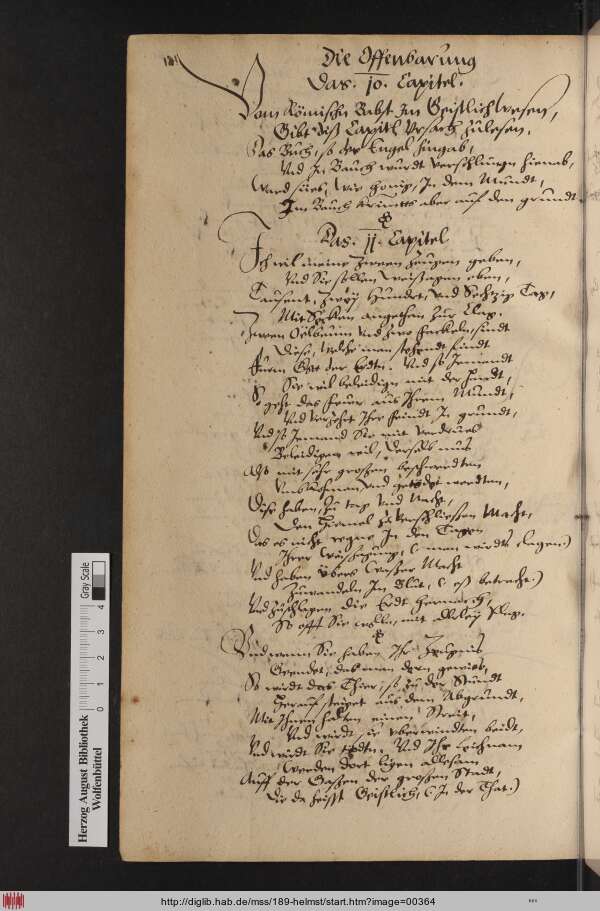 Die Offenbarung
Das. 10. Capitel.
Vom Römischn Babst Im Geistlich wesen,
Gibt diß Capitl Vrsach zulesen.
Das Buch, so der Engel hingab,
Vnd In Bauch wurdt verschlungn hienab,
Ward süß, wie honig, In dem Mundt,
Im Bauch krimts aber auf den grundt.
Das. 11. Capitel
Ich wil meine zween zeugen geben,
Vnd Sie sollen weissagen eben,
Tausent, zwey Hundert, vnd Sechtzig Tag,
Mit Secken angethan zur Clag.
Zween Oelbaum vnd zwo fackeln, sindt
Diese, welche man stehendt findt
Furm Gott der Erdtn. Vnd so Jemandt
Sie wil beleidign mit der handt,
So geht das feuer aus Ihrem Mundt,
Vnd verzehrt Ihr feindt In grundt,
Vnd so Jemand Sie mit
Beleidigen wil, derselb mus
Also mit sehr großen beschwerdten
Vmbkohmen, vnd getödt werdten,
Diese haben, zu tag vnd Nacht,
Den Himel zu verschließen Macht,
Das es nicht regne In den Tagen
Ihrer weissagung, (man wirdts clagen.)
Vnd haben vbers Wasser Macht
Zuwandeln In Blut, (es betracht.)
Vnd zuschlagen die Erdt
So offt Sie wolln, mit allerley Plag.
Vnd wann Sie haben Ihr Zeugnis
Geendet, das man dern gewies,
So wirdt das Thier, so zu der Stundt
Herauf steiget aus dem Abgrundt,
Mit Ihnen halten einen Streit,
Vnd wirdt sie vberwindten beidt,
Vnd wirdt Sie tödten. Vnd Ihr Leichnam
Werden dort ligen allesam
Auff der Gassen der großen Stadt,
Die da heisst Geistlich, (In der That.)
Herzog August Bibliothek
Wolfenbüttel
0 1 2 3 4
Gray Scale
http://diglib.hab.de/mss/189-helmst/start.htm?image=00364